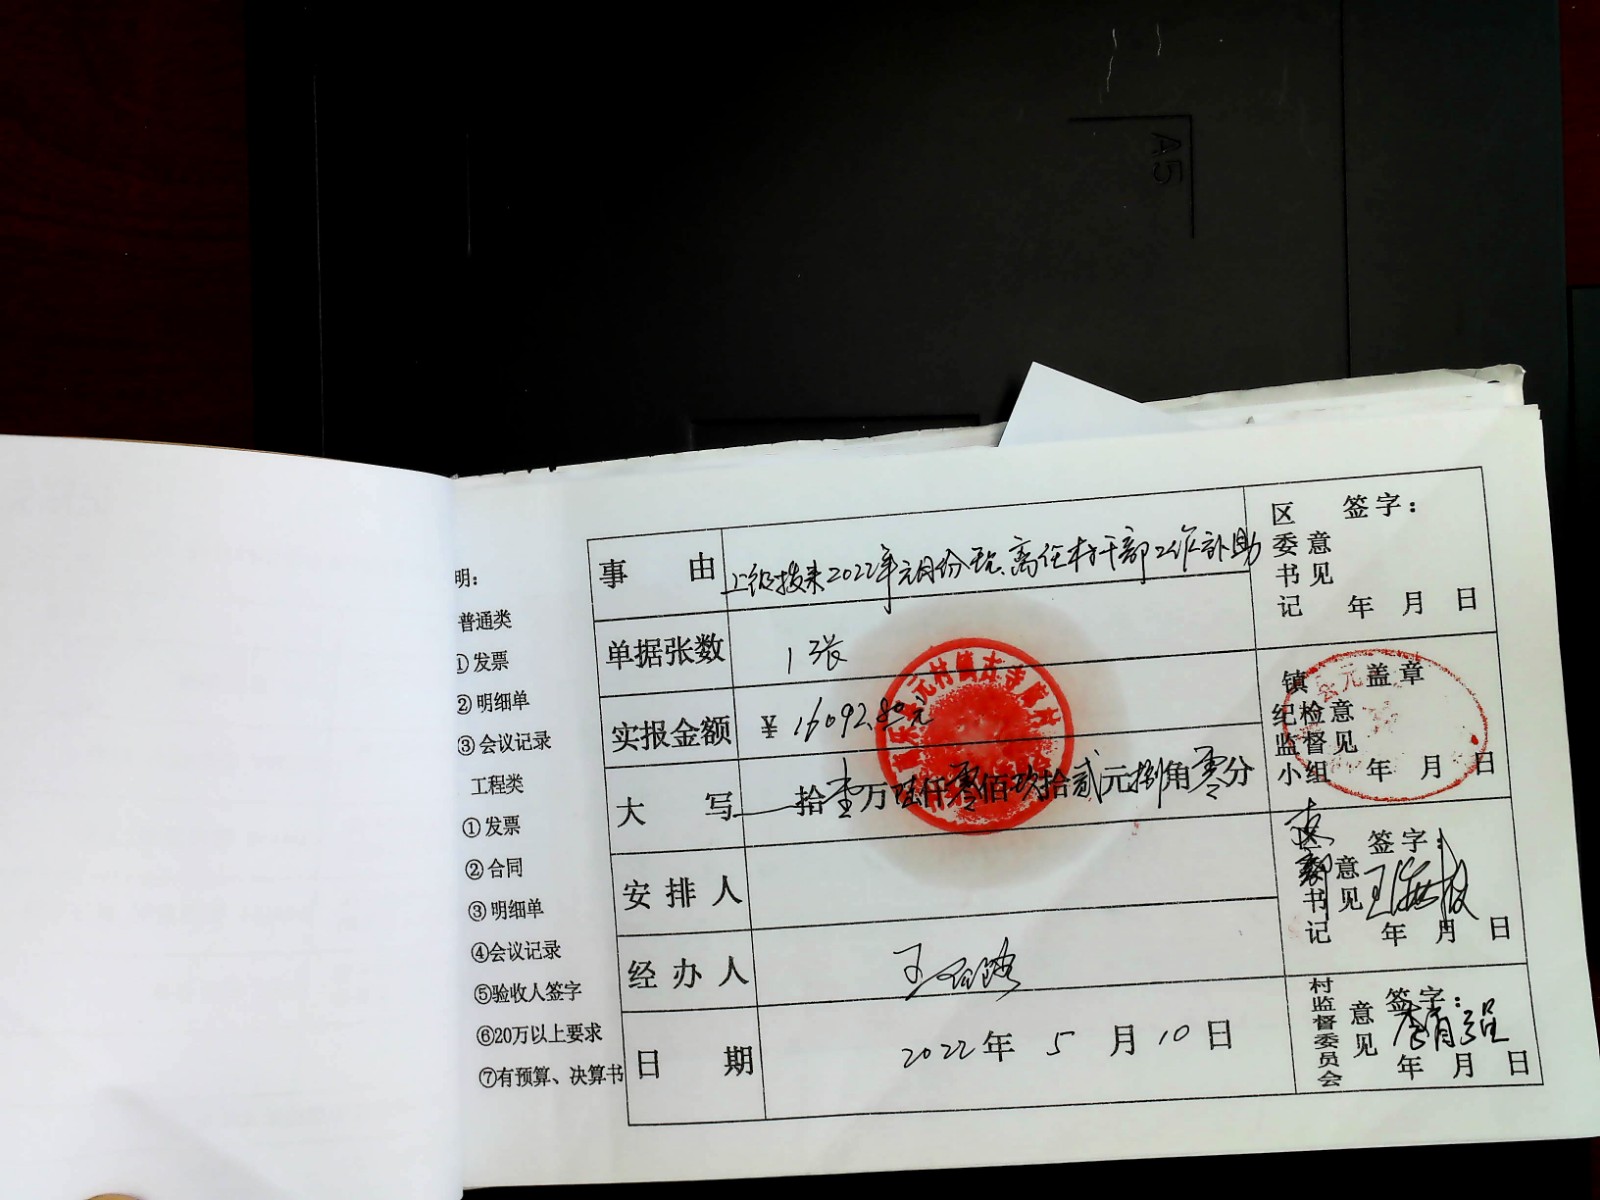 A5
明：
普通类
①发票
②明细单
③会议记录
工程类
①发票
②合同
③明细单
④会议记录
⑤验收人签字
⑥20万以上要求
⑦有预算、决算书
事由 上级拨来2022年元月份 离任村干部工作补助
单据张数 1张
实报金额 ¥16092.80元
大写 拾壹万陆仟零佰玖拾贰元捌角零分
安排人
经办人 王
日期 2022年5月10日
区委书记 意见 签字：
年 月 日
镇纪检监督小组 意见 盖章
年 月 日
书记 意见 签字：
年 月 日
村监督委员会 意见 签字：
年 月 日
元村镇